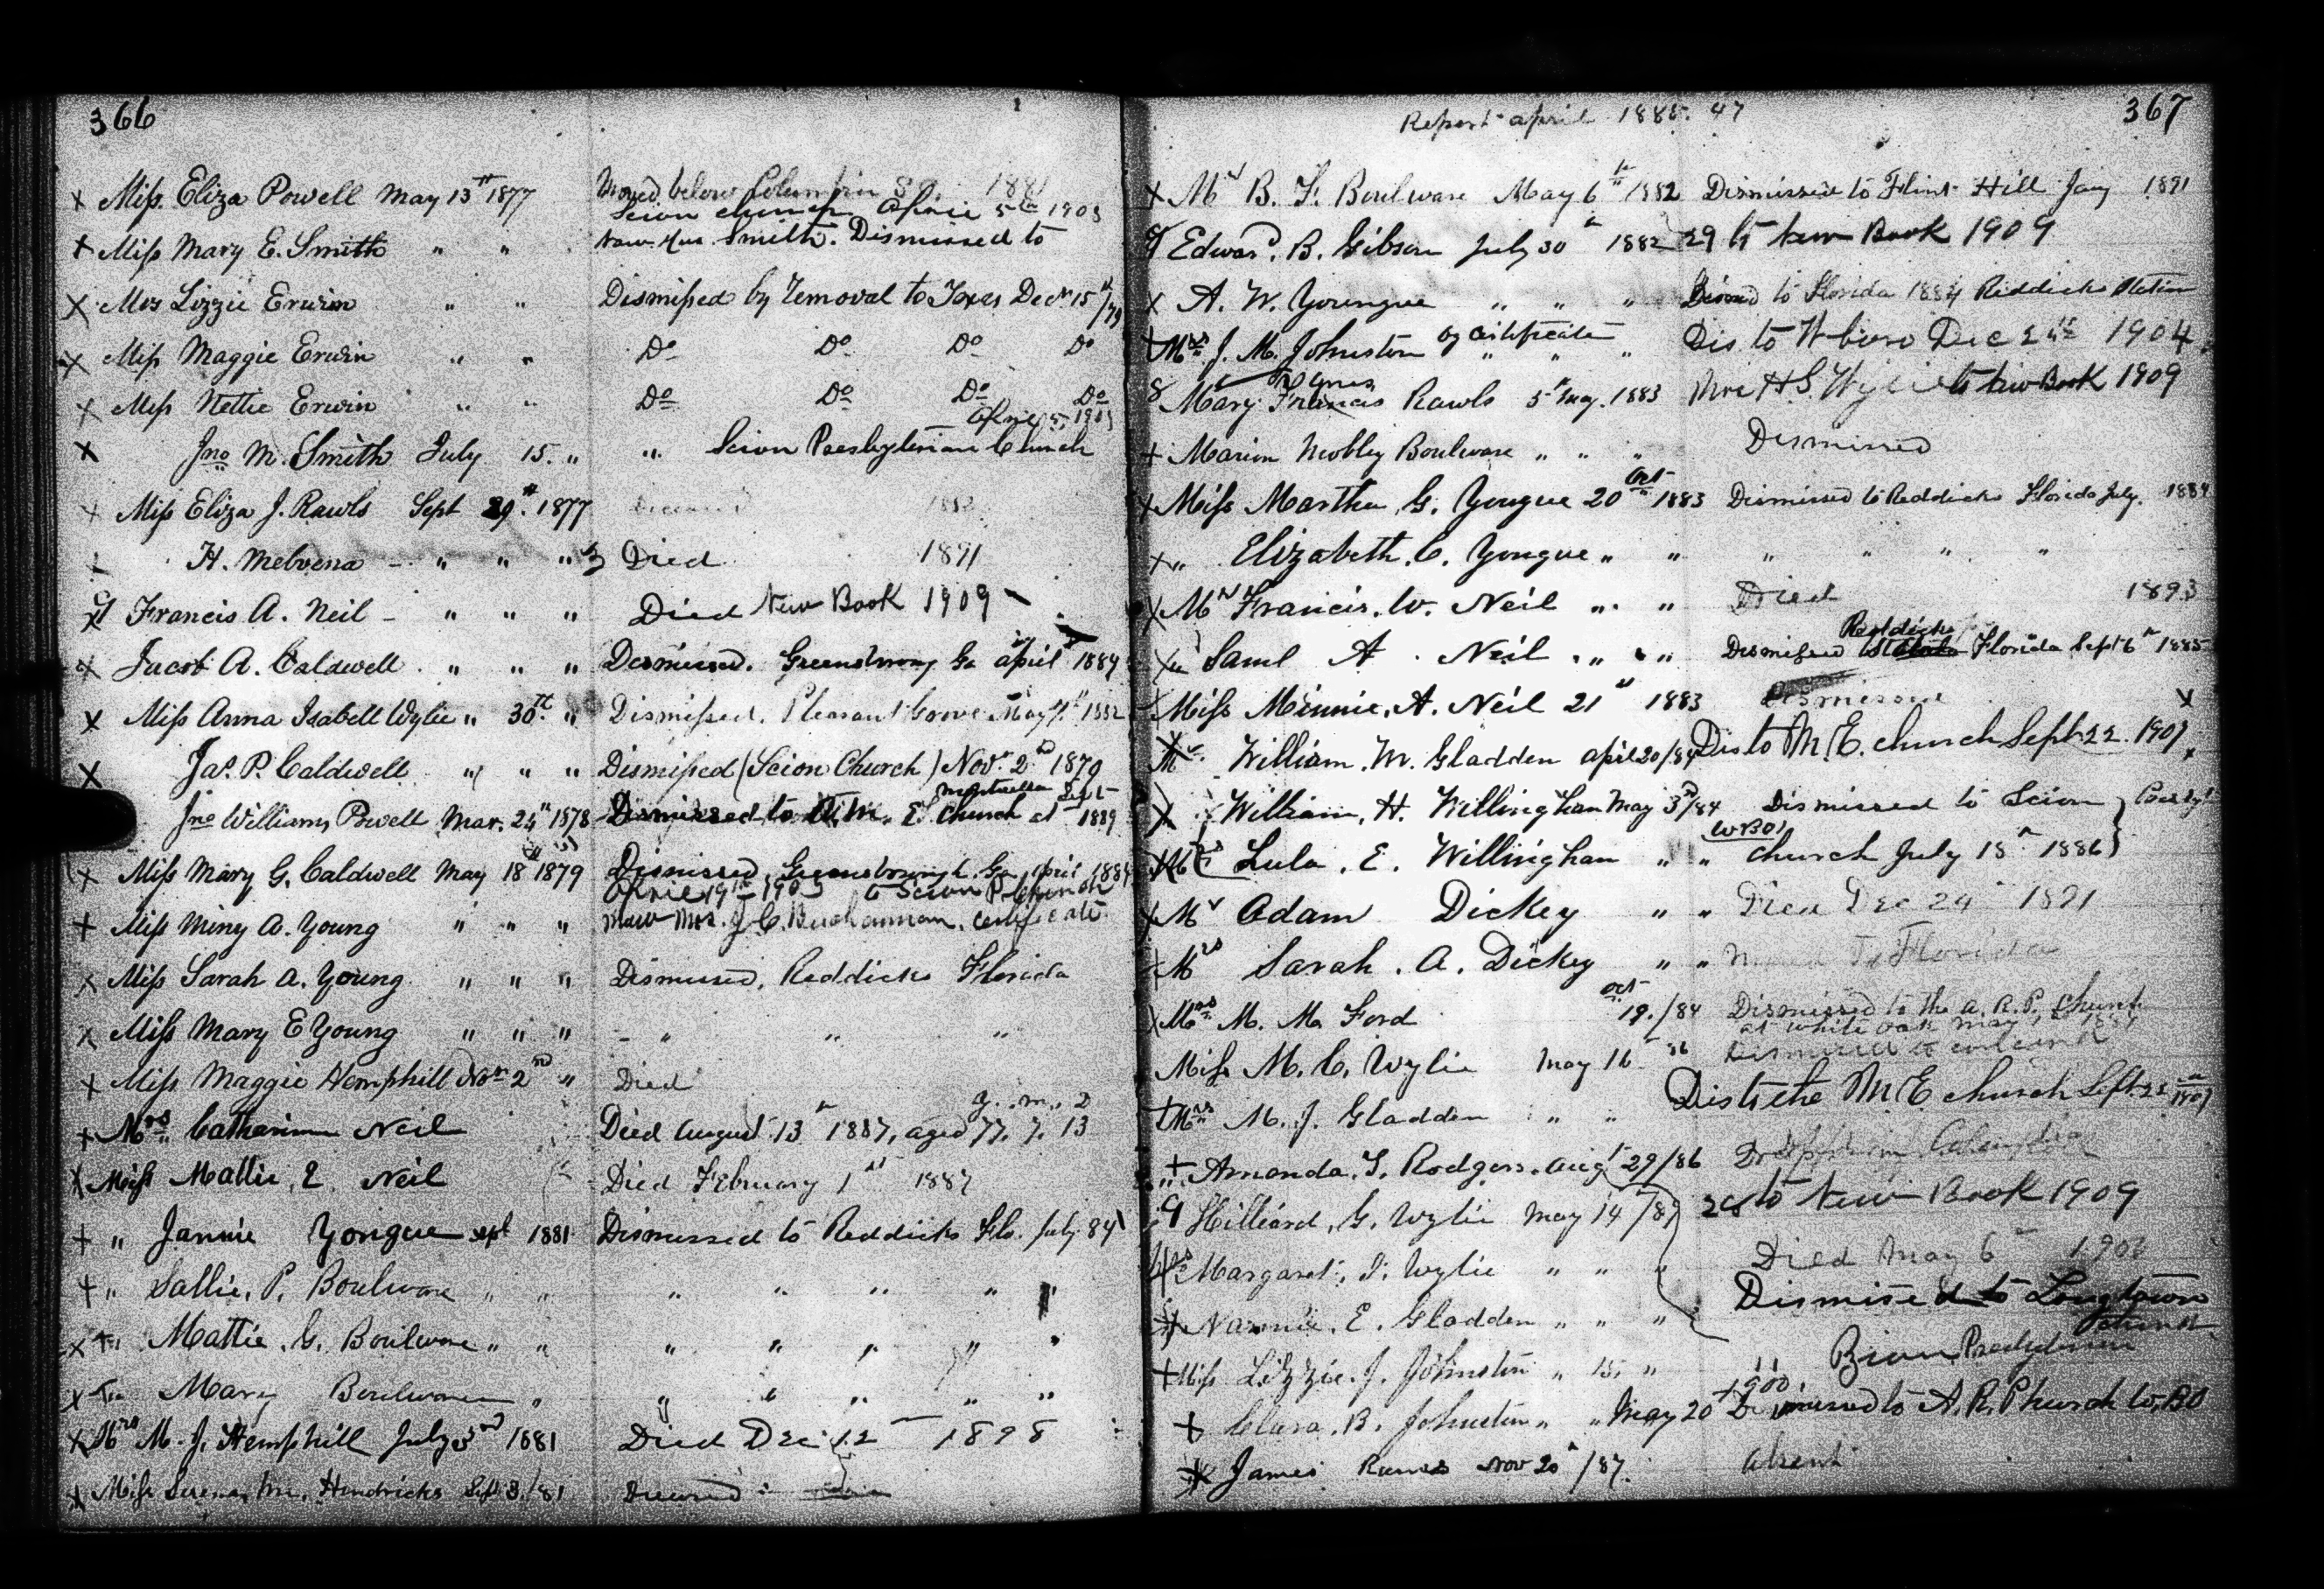 366
Miss Eliza Powell May 13th 1877 Moved below Columbia S.C. 1881
Scion church April 5th 1903
Miss Mary E. Smith " " now Mrs Smith. Dismissed to
Mrs Lizzie Erwin " " Dismissed by removal to Texas Decr 15th/79
Miss Maggie Erwin " " Do Do Do Do
Miss Nettie Erwin " " Do Do Do Do
April 5, 1903
Jno M. Smith July 15. " " Scion Presbyterian Church
Miss Eliza J. Rawls Sept 29th. 1877 Deceased 1882
H. Melvena - " " " Died 1891
Francis A. Neil - " " " Died New Book 1909
Jacob A. Caldwell. " " " Dismissed. Ga April 1884
Miss Anna Isabell Wylie " 30th. " Dismissed. Pleasant Grove May 1882
Jas. P. Caldwell " " " Dismissed (Scion Church) Novr. 2nd 1879
Monticello Sept
Jno William Powell Mar. 24th 1878 Dismissed to M. E. Church at 1889
Miss Mary G. Caldwell May 18th 1879 Dismissed, Greensborough Ga, April 1884
April 19th 1903 to Scion P. Church
Miss Miny A. Young " " " now Mrs. J. C. Buchannan. certificate
Miss Sarah A. Young " " " Dismissed, Reddicks Florida
Miss Mary E Young " " " - " " "
Miss Maggie Hemphill Novr 2nd " Died
y. m. d
Mrs Catharine Neil Died August 13th 1887, aged 77. 7. 13
Miss Mattie E. Neil Died February 1st 1887
" Jannie Yongue Sept 1881 Dismissed to Reddicks Flo. July 84
" Sallie. P. Boulware " " " " " " "
" Mattie. G. Boulware " " " " " " "
" Mary Boulware " " " " " "
Mrs M. J. Hemphill July 3rd 1881 Died Dec 12 1898
Miss M. Hendricks Sept 3./81 Deceased
Report April 1885. 47
367
Mr B. F. Boulware May 6th 1882 Dismissed to Flint Hill Jany 1891
9 Edward. B. Gibson July 30th 1882 29 to New Book 1909
A. W. Youngue " " " to Florida 1884 Reddicks Station
by certificate
Mrs J. M. Johnston " " " Dis. to W-boro Dec 24th 1904
Agnes
8 Mary Francis Rawls 5th May. 1883 Mrs H. S. Wylie to New Book 1909
Marion Mobley Boulware " " " Dismissed
Oct
Miss Martha G. Yongue 20th 1883 Dismissed to Reddicks Florida July. 1884
" Elizabeth. C. Yongue " " " " " "
Mr Francis. W. Neil " " Died 1893
Reddicks
" Saml A. Neil " " " Dismissed to Florida Sept 6th 1885
Miss Minnie. A. Neil 21st 1883 Dismissed
Mr. William. M. Gladden April 20/84 Dis to M. E. church Sept. 22. 1907
William. H. Willingham May 3rd/84 Dismissed to Scion
WBO
Mrs Lula. E. Willingham " " church July 18th 1886
Mr Adam Dickey " " Died Dec 24th 1891
Mrs Sarah. A. Dickey " " Moved To Florida
Oct
Mrs M. M. Ford 19./84 Dismissed to the A. R. P. Church
at White Oak May
Miss M. C. Wylie May 16 86 Dismissed
Mrs M. J. Gladden " " Dis to the M E church Sept. 22 1907
Amanda. S. Rodgers. Aug 29/86 Columbia
9 Hilliard. G. Wylie May 14/87 28 to New Book 1909
Mrs Margaret. J. Wylie " " " Died May 6th
Nannie. E. Gladden " " " Dismissed to Longtown
church
Miss Lizzie. J. Johnston " 15. " " Zion Presbyterian
1900
Clara. B. Johnston " " May 20th Dismissed to A. R. P church W.BO
James Nov 20th/87. Absent